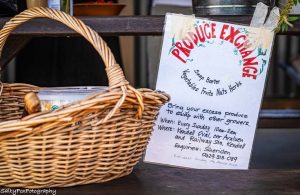 PRODUCE EXCHANGE
Swap Barter
Vegetables Fruits Nuts Herbs
Bring your excess produce
to swap with other growers
When: Every Sunday 10am-2pm
Where: Kendall Oval, cnr Arakun
and Railway Sts, Kendall
Enquiries:
SallyFoxPhotography